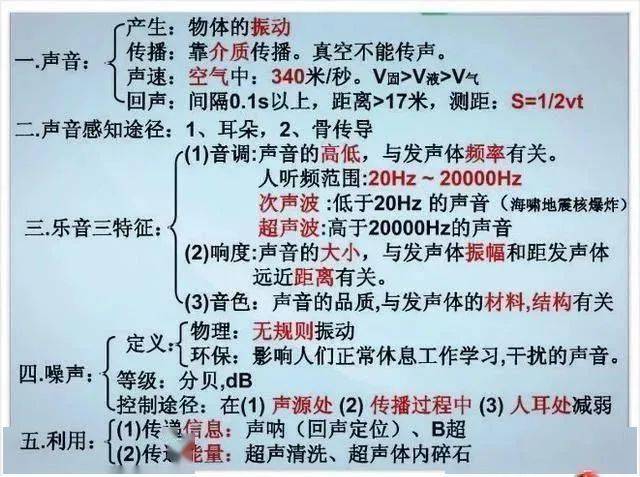 一.声音：
产生：物体的振动
传播：靠介质传播。真空不能传声。
声速：空气中：340米/秒。V固>V液>V气
回声：间隔0.1s以上，距离>17米，测距：S=1/2vt
二.声音感知途径：1、耳朵，2、骨传导
三.乐音三特征：
(1)音调:声音的高低，与发声体频率有关。
人听频范围:20Hz ~ 20000Hz
次声波 :低于20Hz 的声音（海啸地震核爆炸）
超声波:高于20000Hz的声音
(2)响度:声音的大小，与发声体振幅和距发声体
远近距离有关。
(3)音色：声音的品质,与发声体的材料,结构有关
四.噪声：
定义：
物理：无规则振动
环保：影响人们正常休息工作学习,干扰的声音。
等级：分贝,dB
控制途径：在(1) 声源处 (2) 传播过程中 (3) 人耳处减弱
五.利用：
(1)传递信息：声呐（回声定位）、B超
(2)传递能量：超声清洗、超声体内碎石